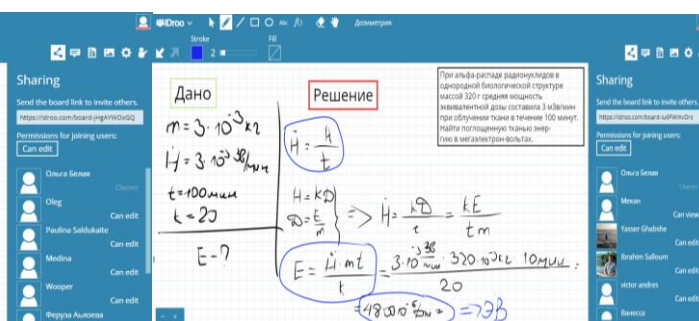 Sharing
Send the board link to invite others.
https://idroo.com/board-jHgAYWOxGQ
Permissions for joining users:
Can edit
Ольга Белая
Owner
Oleg
Can edit
Paulina Saldukaite
Can edit
Medina
Can edit
Wooper
Can edit
Феруза Аьлоева
IDroo
Abc
f()
Дозиметрия
Stroke
2
Fill
Дано
m = 3 · 10⁻³ кг
Ḣ = 3 · 10⁻³ Зв/мин
t = 100 мин
k = 20
E - ?
Решение
Ḣ = H/t
H = kD
D = E/m
=> Ḣ = kD/t = kE/tm
E = Ḣ · mt / k = 3 · 10⁻³ Зв/мин · 320 · 10⁻³ кг · 10 мин / 20 =
=> ЭВ
При альфа-распаде радионуклидов в
однородной биологической структуре
массой 320 г средняя мощность
эквивалентной дозы составила 3 мЗв/мин
при облучении ткани в течение 100 минут.
Найти поглощенную тканью энер-
гию в мегаэлектрон-вольтах.
Sharing
Send the board link to invite others.
Permissions for joining users:
Can edit
Ольга Белая
Owner
Механ
Can view
Yasser Ghabshe
Can edit
Ibrahim Salloum
Can edit
victor andres
Can edit
Ванесса
Can edit